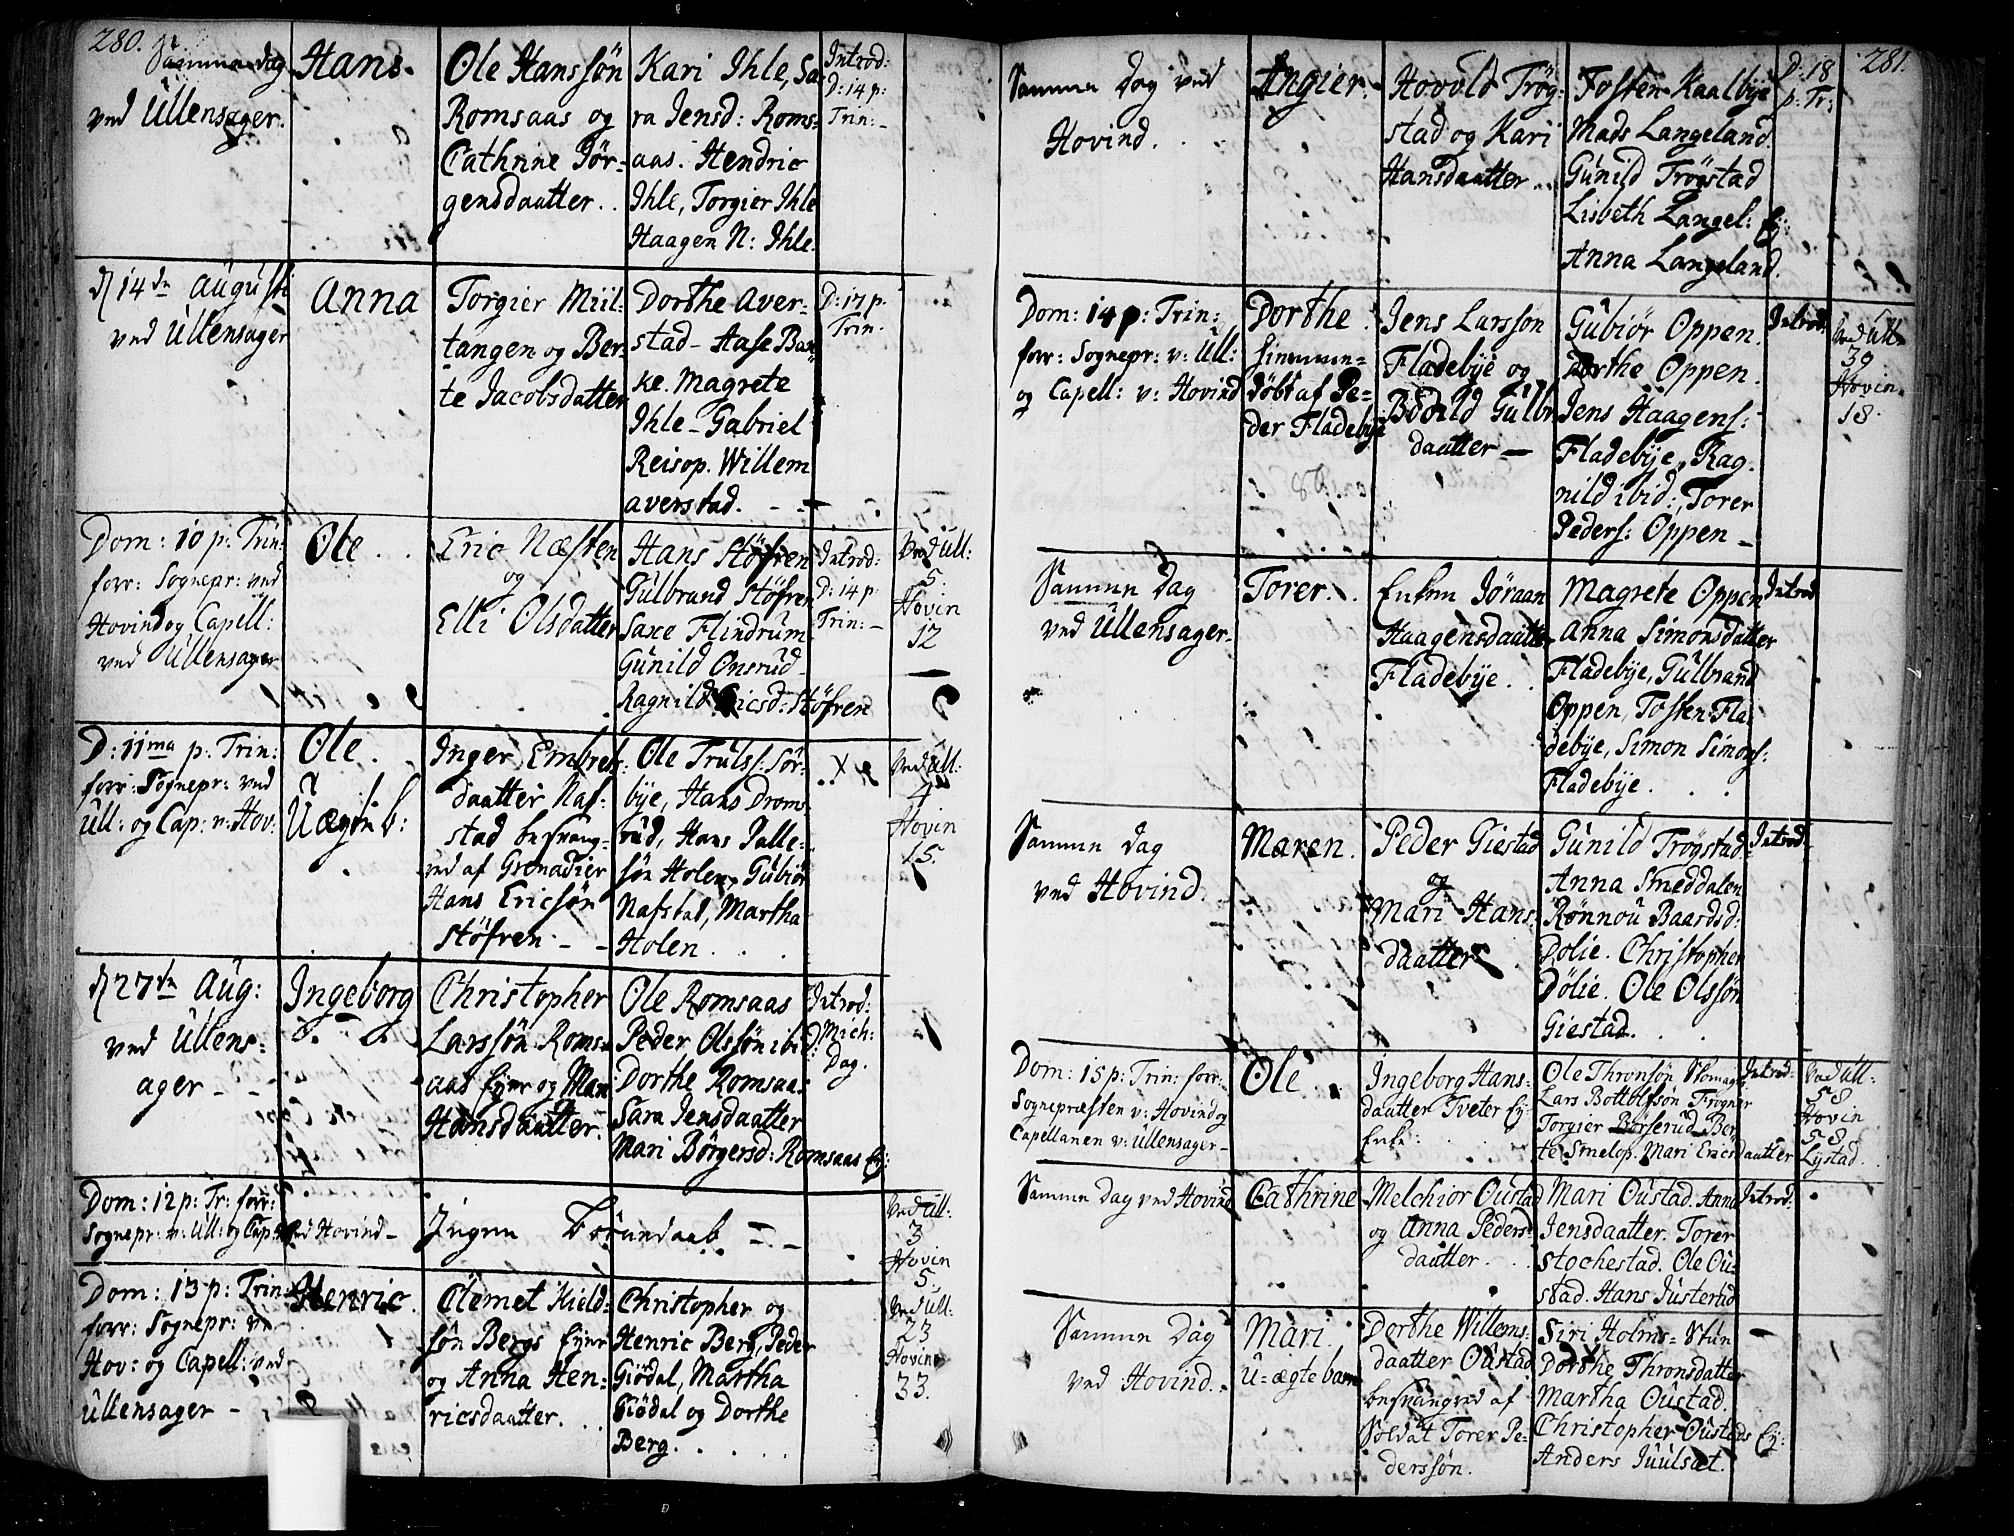 280.
Samme dag
ved Ullensager.
Hans.
Ole Hanssön
Romsaas og
Cathrine Jör-
gensdaatter.
Kari Ihle, Sa
ra Jensd: Roms-
aas. Hendric
Ihle, Torgier Ihle
Haagen N: Ihle.
Introd:
D: 14 p:
Trin:
d 14de Augusti
ved Ullensager
Anna
Torgier Miil-
tangen og Ber-
te Jacobsdatter
Dorthe Aver-
stad - Aase Bak
ke. Magrete
Ihle - Gabriel
Reisop. Willem
averstad.
D: 17 p.
Trin.
Dom: 10 p: Trin:
forr: Sognepr: ved
Hovind og Capell:
ved Ullensager
Ole
Eric Næsten
og
Elli Olsdatter
Hans Stöfren
Gulbrand Stöfren
Saxe Flindrum
Gunild Onsrud
Ragnild Ericsd: Stöfren
Introd:
D: 14 p
Trin:
Ved Ull:
5.
Hovin
12
D: 11ma p: Trin:
forr: Sognepr: ved
Ull: og Cap: v: Hov:
Ole.
Uægte b:
Inger Embrets:
daatter Naf-
stad besvang-
red af Grenadier
Hans Ericsön
Stöfren
Ole Truls: Sör-
bye, Hans Drom
rud, Hans Palle-
sön Holen, Gubiör
Nafstad, Martha
Holen
X
Ved Ull:
4
Hovin
15.
d 27de Aug:
ved Ullens-
ager
Ingeborg
Christopher
Larssön Roms-
aas Ejer og Mari
Hansdaatter.
Ole Romsaas
Peder Olssön ibid
Dorthe Romsaas
Sara Jensdaatter
Mari Börgersd: Romsaas Ej:
Introd:
D: Mich:
Dag.
Dom: 12 p: Tr: forr:
Sognepr: v: Ull: og Cap: ved Hovind
Ingen Börn daab
Ved Ull:
3
Hovin
5.
Dom: 13 p: Trin:
forr: Sognepr: ved
Hov: og Capell: ved
Ullensager
Henric.
Clemet Kield-
sön Bergs Ejer
og Anna Hen-
ricsdaatter.
Christopher og
Henric Berg, Peder
Giödal, Martha
Giödal og Dorthe
Berg.
Ved Ull:
23
Hovin
33.
281.
Samme Dag ved
Hovind.
Angier.
Hovold Trög-
stad og Kari
Hansdaatter
Tosten Kaalbye
Mads Langeland.
Gunild Trögstad
Lisbeth Langel: Ej:
Anna Langeland.
D: 18
p: Tr:
Dom: 14 p: Trin:
forr: Sognepr: v: Ull:
og Capell: v: Hovind
Dorthe
hiemme-
döbt af Pe-
der Fladebye
Jens Larsson
Fladebye og
Bodild Gulbr
daatter
Gubiör Oppen.
Dorthe Oppen.
Jens Haagens:
Fladebye, Rag-
nild ibid:, Torer
Peders: Oppen
Introd:
Ved Ull:
39
Hovin
18.
Samme Dag
ved Ullensager.
Torer.
Enken Jöraan
Haagensdaatter
Fladebye.
Magrete Oppen
Anna Simonsdatter
Fladebye, Gulbrand
Oppen, Tosten Fla
debye, Simon Simons:
Fladebye.
Introd
Samme Dag
ved Hovind.
Maren.
Peder Giestad
og
Mari Hans
daatter
Gunild Trögstad
Anna Smeddalen
Rönnou Baardsd:
Dölie. Christopher
Dölie. Ole Olssön
Giestad.
Introd.
Dom: 15 p: Trin: forr:
Sognepræsten v: Hovind og
Capellanen v: Ullensager
Ole
Ingeborg Hans-
daatter Tveter Ej-
Enke:
Ole Thronsön Skomager
Lars Bottolfsön Frogner
Torgier Börserud Ber
te Smelop. Mari Ericsdaatter
Introd:
Ved Ull:
58
Hovin
58
Lystad.
Samme Dag ved Hovind
Cathrine
Melchior Oustad
og Anna Peders-
daatter
Mari Oustad. Anna
Jensdaatter. Torer
Stochestad. Ole Ou-
stad. Hans Justerud
Introd:
Samme Dag
ved Hovind.
Mari
U-ægte barn
Dorthe Willems-
daatter Oustad
besvangred af
Soldat Torer Pe-
derssön.
Siri Holms-
Dorthe Thronsdatter
Martha Oustad.
Christopher Oustads Ej:
Anders Juulsæt.